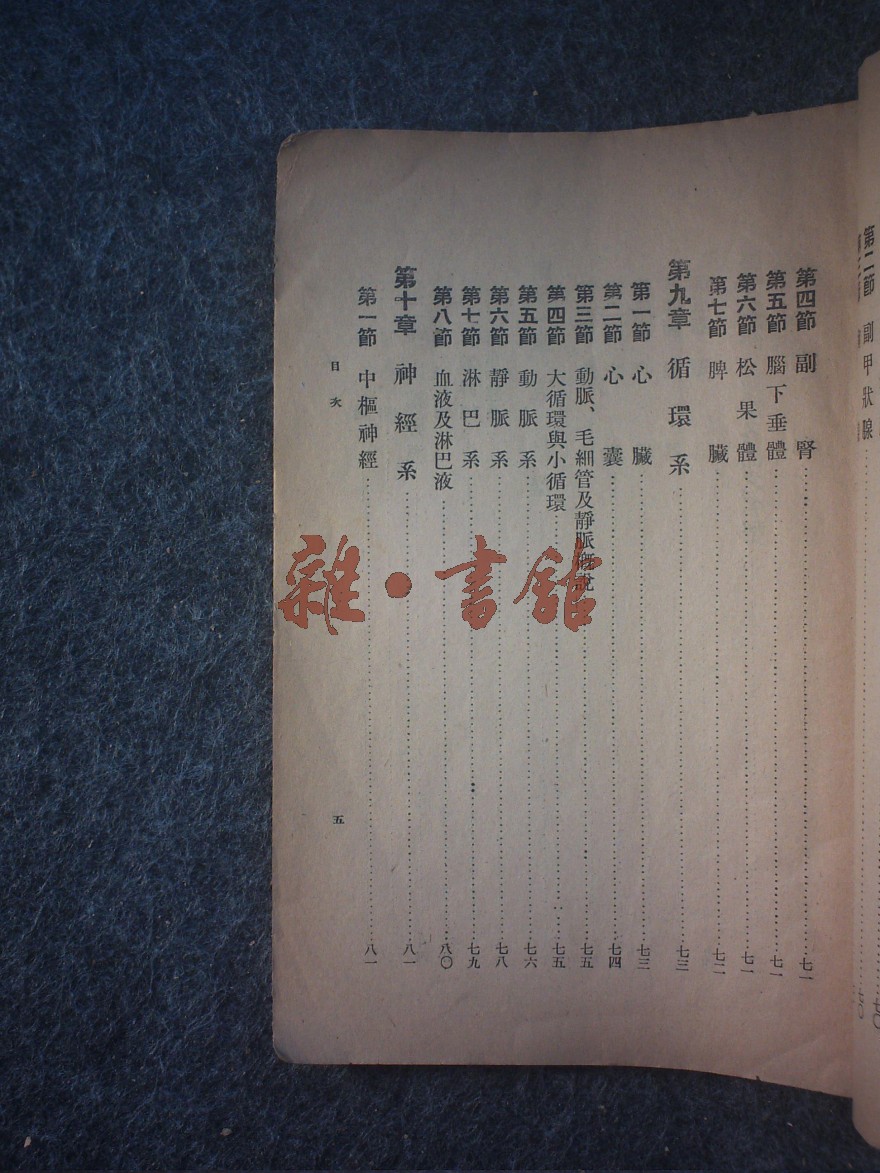 第二節 副甲狀腺
第四節 副腎……七一
第五節 腦下垂體……七一
第六節 松果體……七一
第七節 脾臟……七二
第九章 循環系……七三
第一節 心臟……七三
第二節 心囊……七四
第三節 動脈、毛細管及靜脈概說……七五
第四節 大循環與小循環……七五
第五節 動脈系……七六
第六節 靜脈系……七八
第七節 淋巴系……七九
第八節 血液及淋巴液……八〇
第十章 神經系……八一
第一節 中樞神經……八一
目次
五
雜·書館